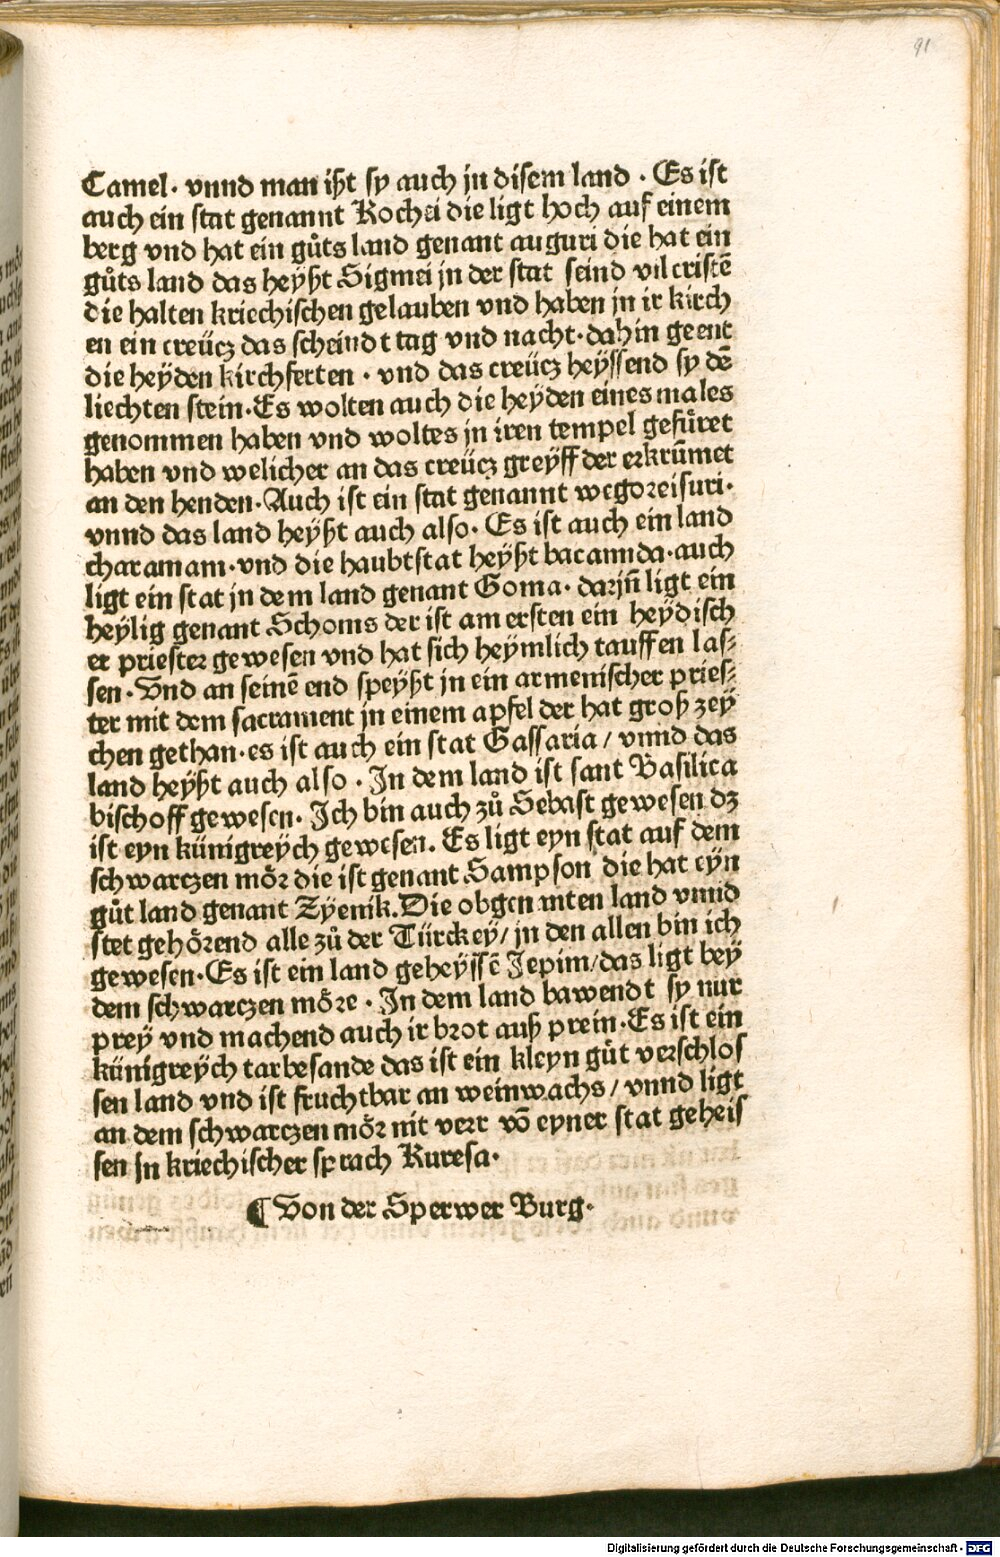 91
Camel. vnnd man ißt sy auch jn disem land . Es ist
auch ein stat genannt Kochei die ligt hoch auf einem
berg vnd hat ein gůts land genant auguri die hat ein
gůts land das heyßt Sigmei jn der stat seind vil cristē
die halten kriechischen gelauben vnd haben jn ir kirch
en ein creücz das scheindt tag vnd nacht. dahin geent
die heyden kirchferten . vnd das creücz heyssend sy dē
liechten stein. Es wolten auch die heyden eines males
genommen haben vnd woltes jn iren tempel gefůret
haben vnd welicher an das creücz greyff der erkrūmet
an den henden. Auch ist ein stat genannt wegoreisuri.
vnnd das land heyßt auch also. Es ist auch ein land
charamam. vnd die haubtstat heyßt bacamida. auch
ligt ein stat jn dem land genant Goma. darjn̄ ligt ein
heylig genant Schoms der ist am ersten ein heydisch
er priester gewesen vnd hat sich heymlich tauffen las⸗
sen. Vnd an seinē end speyßt jn ein armenischer pries⸗
ter mit dem sacrament jn einem apfel der hat groß zey
chen gethan. es ist auch ein stat Gassaria / vnnd das
land heyßt auch also . In dem land ist sant Basilica
bischoff gewesen. Ich bin auch zů Sebast gewesen dz
ist eyn künigreych gewesen. Es ligt eyn stat auf dem
schwarczen mör die ist genant Sampson die hat eyn
gůt land genant Zyenik. Die obgenanten land vnnd
stet gehörend alle zů der Türckey / jn den allen bin ich
gewesen. Es ist ein land geheyssē Jepim / das ligt bey
dem schwarczen möre . In dem land bawendt sy nur
prey vnd machend auch ir brot auß prein. Es ist ein
künigreych tarbesande das ist ein kleyn gůt verschlos
sen land vnd ist fruchtbar an weinwachs / vnnd ligt
an dem schwarczen mör nit verr vō eyner stat geheis
sen jn kriechischer sprach Kuresa.
¶ Von der Sperwer Burg.
Digitalisierung gefördert durch die Deutsche Forschungsgemeinschaft - DFG